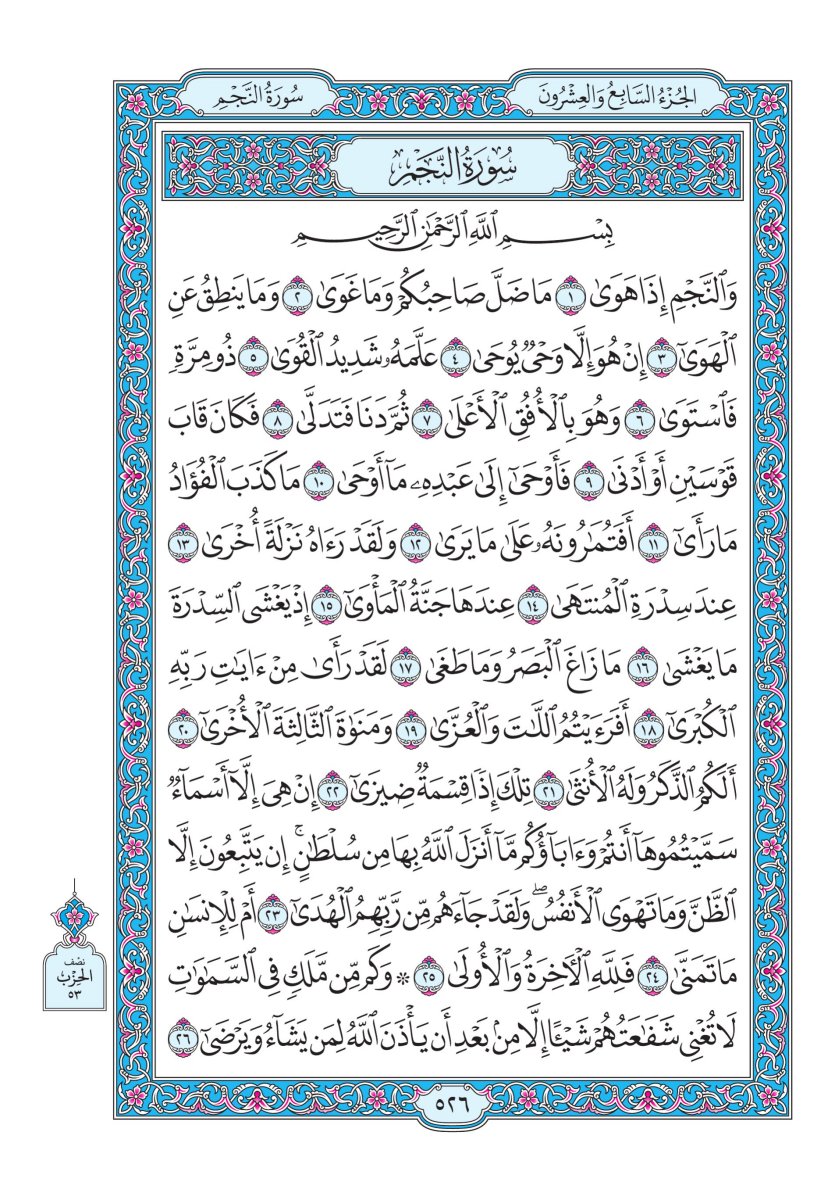 الجُزْءُ السَّابِعُ وَالعِشْرُونَ
سُورَةُ النَّجْمِ
سُورَةُ النَّجْمِ
بِسْمِ ٱللَّهِ ٱلرَّحْمَٰنِ ٱلرَّحِيمِ
وَٱلنَّجْمِ إِذَا هَوَىٰ ١ مَا ضَلَّ صَاحِبُكُمْ وَمَا غَوَىٰ ٢ وَمَا يَنطِقُ عَنِ
ٱلْهَوَىٰٓ ٣ إِنْ هُوَ إِلَّا وَحْىٌ يُوحَىٰ ٤ عَلَّمَهُۥ شَدِيدُ ٱلْقُوَىٰ ٥ ذُو مِرَّةٍ
فَٱسْتَوَىٰ ٦ وَهُوَ بِٱلْأُفُقِ ٱلْأَعْلَىٰ ٧ ثُمَّ دَنَا فَتَدَلَّىٰ ٨ فَكَانَ قَابَ
قَوْسَيْنِ أَوْ أَدْنَىٰ ٩ فَأَوْحَىٰٓ إِلَىٰ عَبْدِهِۦ مَآ أَوْحَىٰ ١٠ مَا كَذَبَ ٱلْفُؤَادُ
مَا رَأَىٰٓ ١١ أَفَتُمَٰرُونَهُۥ عَلَىٰ مَا يَرَىٰ ١٢ وَلَقَدْ رَءَاهُ نَزْلَةً أُخْرَىٰ ١٣
عِندَ سِدْرَةِ ٱلْمُنتَهَىٰ ١٤ عِندَهَا جَنَّةُ ٱلْمَأْوَىٰٓ ١٥ إِذْ يَغْشَى ٱلسِّدْرَةَ
مَا يَغْشَىٰ ١٦ مَا زَاغَ ٱلْبَصَرُ وَمَا طَغَىٰ ١٧ لَقَدْ رَأَىٰ مِنْ ءَايَٰتِ رَبِّهِ
ٱلْكُبْرَىٰٓ ١٨ أَفَرَءَيْتُمُ ٱللَّٰتَ وَٱلْعُزَّىٰ ١٩ وَمَنَوٰةَ ٱلثَّالِثَةَ ٱلْأُخْرَىٰٓ ٢٠
أَلَكُمُ ٱلذَّكَرُ وَلَهُ ٱلْأُنثَىٰ ٢١ تِلْكَ إِذًا قِسْمَةٌ ضِيزَىٰٓ ٢٢ إِنْ هِىَ إِلَّآ أَسْمَآءٌ
سَمَّيْتُمُوهَآ أَنتُمْ وَءَابَآؤُكُم مَّآ أَنزَلَ ٱللَّهُ بِهَا مِن سُلْطَٰنٍ ۚ إِن يَتَّبِعُونَ إِلَّا
ٱلظَّنَّ وَمَا تَهْوَى ٱلْأَنفُسُ ۖ وَلَقَدْ جَآءَهُم مِّن رَّبِّهِمُ ٱلْهُدَىٰٓ ٢٣ أَمْ لِلْإِنسَٰنِ
مَا تَمَنَّىٰ ٢٤ فَلِلَّهِ ٱلْءَاخِرَةُ وَٱلْأُولَىٰ ٢٥ * وَكَم مِّن مَّلَكٍ فِى ٱلسَّمَٰوَٰتِ
لَا تُغْنِى شَفَٰعَتُهُمْ شَيْـًٔا إِلَّا مِنۢ بَعْدِ أَن يَأْذَنَ ٱللَّهُ لِمَن يَشَآءُ وَيَرْضَىٰٓ ٢٦
نصف
الحِزْبُ
٥٣
٥٢٦